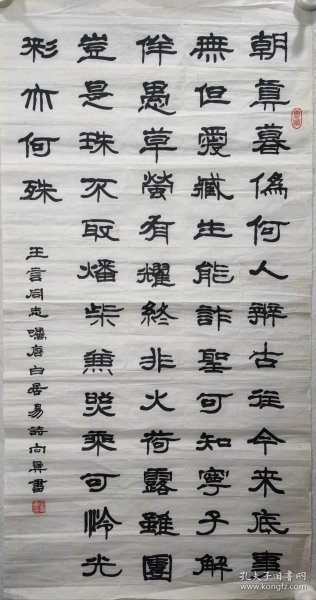 朝眞暮偽何人辨古往今来底事
無但愛藏生能詐聖可知寧子解
佯愚草螢有耀終非火荷露雖團
豈是珠不取燔柴兼照乘可怜光
彩亦何殊
王言同志嘱唐白居易詩向書
孔夫子旧书网